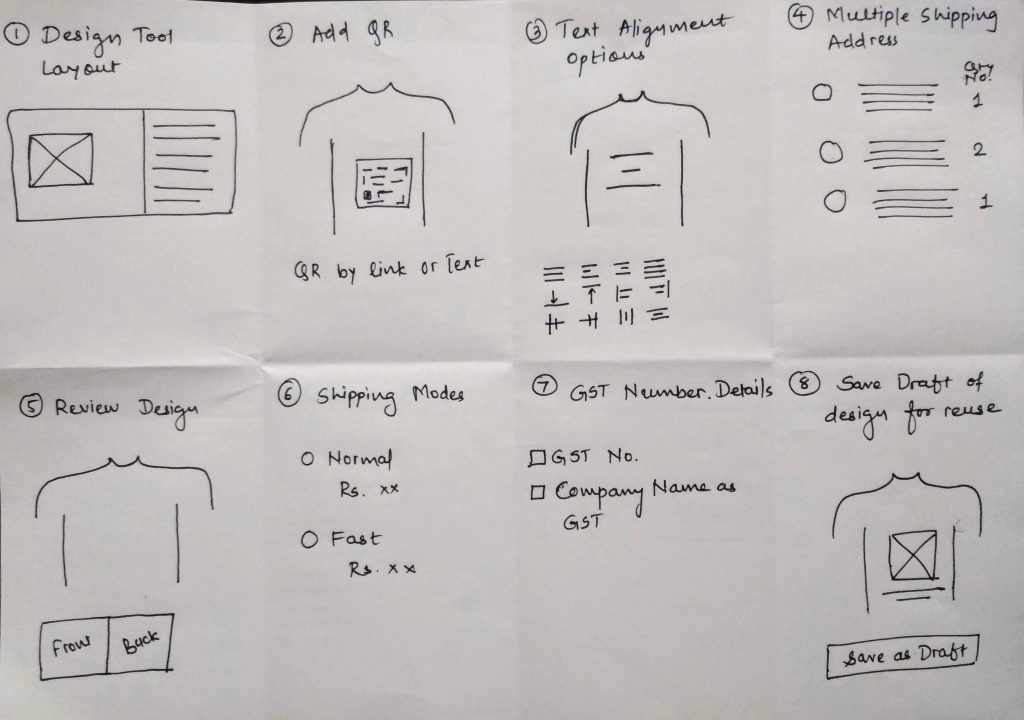 ① Design Tool
Layout
② Add QR
QR by link or Text
③ Text Alignment
Options
④ Multiple Shipping
Address
Qty
No.
1
2
1
⑤ Review Design
Front
Back
⑥ Shipping Modes
Normal
Rs. xx
Fast
Rs. xx
⑦ GST Number. Details
GST No.
Company Name as
GST
⑧ Save Draft of
design for reuse
Save as Draft